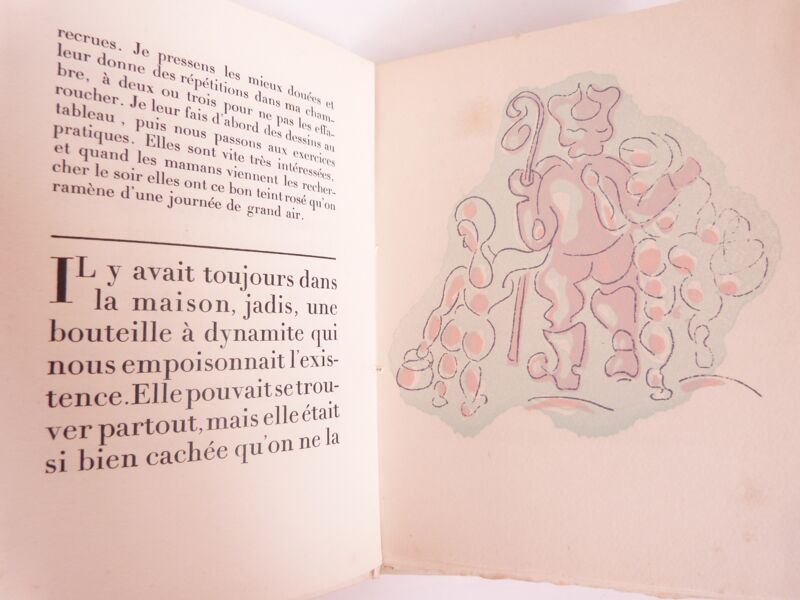 recrues. Je pressens les mieux douées et
leur donne des répétitions dans ma cham-
bre, à deux ou trois pour ne pas les effa-
roucher. Je leur fais d'abord des dessins au
tableau, puis nous passons aux exercices
pratiques. Elles sont vite très intéressées,
et quand les mamans viennent les recher-
cher le soir elles ont ce bon teint rosé qu'on
ramène d'une journée de grand air.
IL y avait toujours dans
la maison, jadis, une
bouteille à dynamite qui
nous empoisonnait l'exis-
tence. Elle pouvait se trou-
ver partout, mais elle était
si bien cachée qu'on ne la